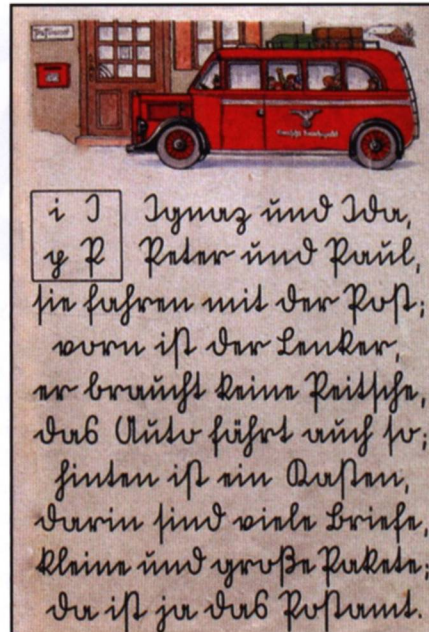 Postamt
Deutsche Reichspost
i I Ignaz und Ida,
p P Peter und Paul,
sie fahren mit der Post;
vorn ist der Lenker,
er braucht keine Peitsche,
das Auto fährt auch so;
hinten ist ein Kasten,
darin sind viele Briefe,
kleine und große Pakete;
da ist ja das Postamt.